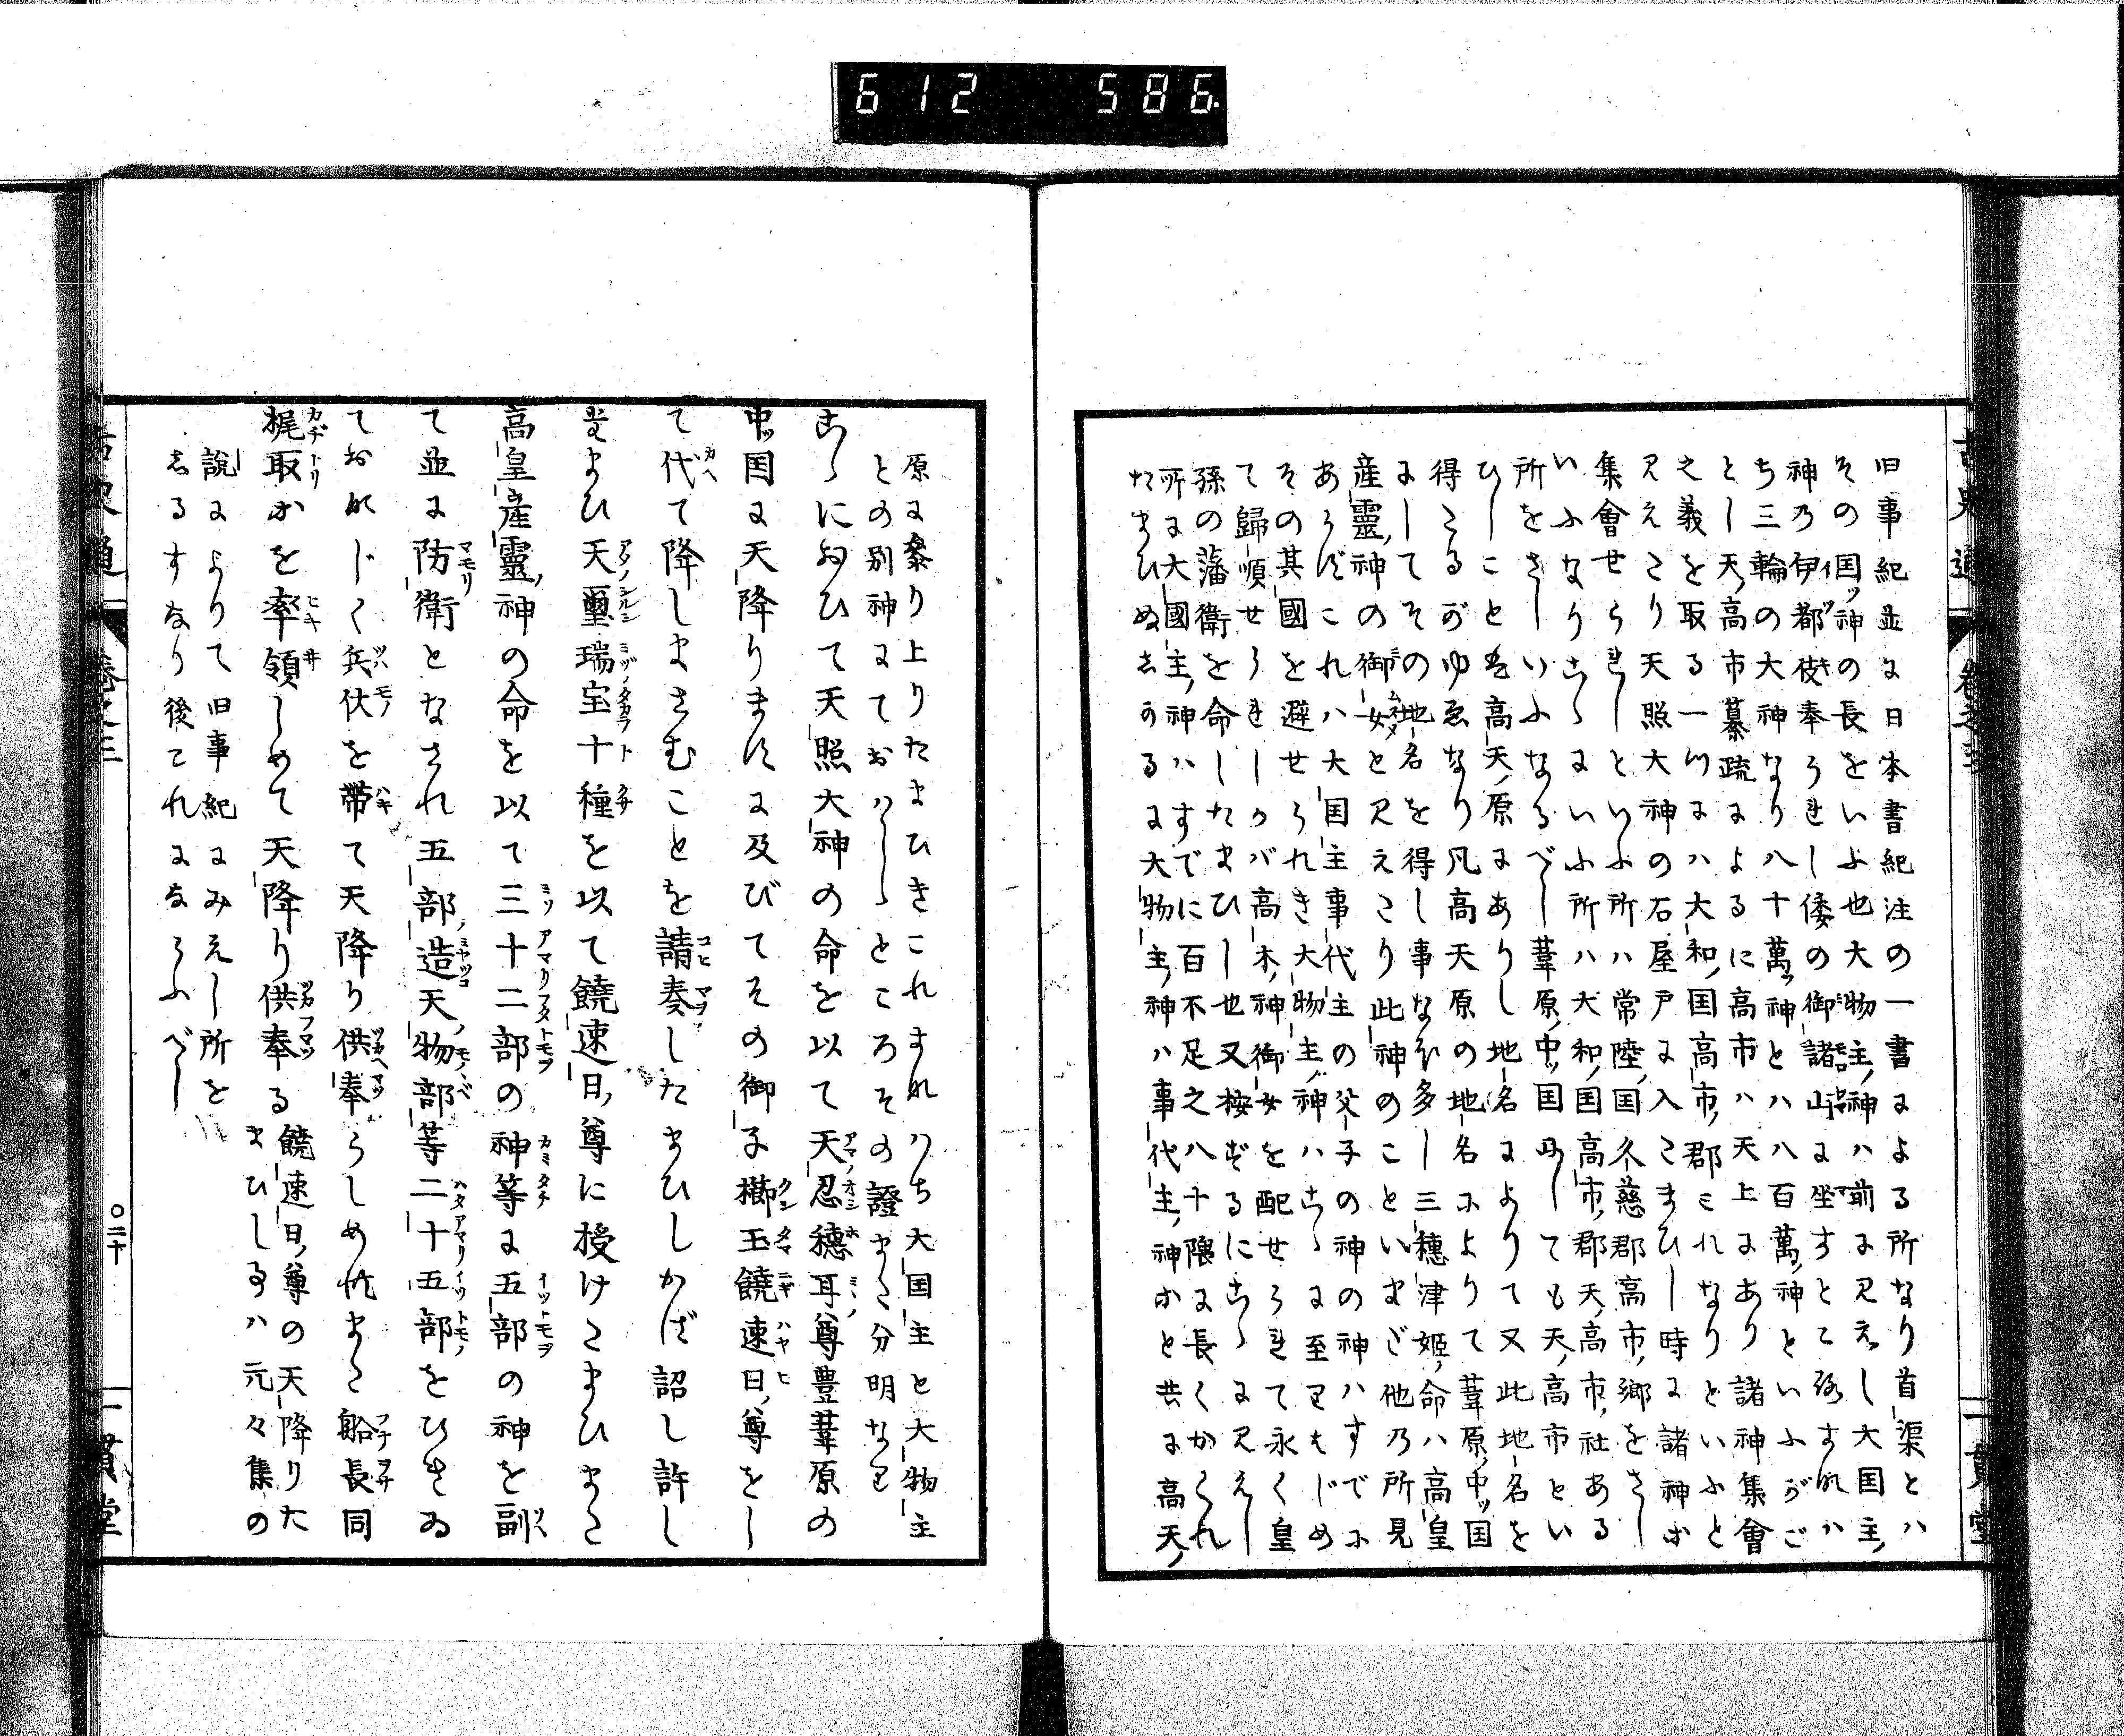 612 586
旧事紀並に日本書紀注の一書による所なり首渠とハ
その国ッ神の長をいふ也大物主ノ神ハ前に見えし大国主ノ
神乃伊都伎奉られし倭の御諸山に坐すとて
ち三輪の大神なり八十萬ッ神とハ八百萬ノ神といふがご
とし天ノ高市纂疏によるに高市ハ天上にあり諸神集會
之義を取る一ッにハ大和ノ国高市ノ郡これなりといふと
見えたり天照大神の石屋戸に入たまひし時に諸神
集會せられしといふ所ハ常陸ノ国久慈郡高市ノ郷をさし
いふなりこゝにいふ所ハ大和ノ国高市ノ郡天ノ高市ノ社ある
所をさしいふなるべし葦原ノ中ッ国にしても天ノ高市とい
ひしこと高天ノ原にありし地名によりて又此地名を
得たるがゆゑなり凡高天原の地名によりて葦原ノ中ッ国
にしてその地名を得し事なほ多し三穂津姫ノ命ハ高皇
産靈ノ神の御女と見えたり此神のこといまだ他乃所見
あらずこれハ大国主事代主の父子の神の神ハすでに
その其國を避せられき大物主ノ神ハこゝに至りはじめ
て歸順せられしかバ高木ノ神御女を配せられて永く皇
孫の藩衛を命したまひし也又按ずるにこゝに見えし
所に大國主ノ神ハすでに百不足之八十隈に長くかくれ
たまひぬしかるに大物主ノ神ハ事代主ノ神と共に高天ノ
原に参り上りたまひきこれすなハち大国主と大物主
との別神にておハしゝところその證また分明なり
こゝにおひて天照大神の命を以て天忍穂耳尊豊葦原の
中ッ国に天降りますに及びてその御子櫛玉饒速日ノ尊をし
て代て降しまさむことを請奏したまひしかば詔し許し
たまひ天璽瑞宝十種を以て饒速日ノ尊に授けたまひまた
高皇産靈ノ神の命を以て三十二部の神等に五部の神を副
て並に防衛となされ五部ノ造天ノ物部等二十五部をひきゐ
ておなじく兵仗を帯て天降り供奉らしめまた船長同
梶取等を率領しめて天降り供奉る
饒速日ノ尊の天降りた
まひしるハ元々集の
説によりて旧事紀にみえし所を
しるすなり後これにならふべし
巻之三
〇二十
一貫堂